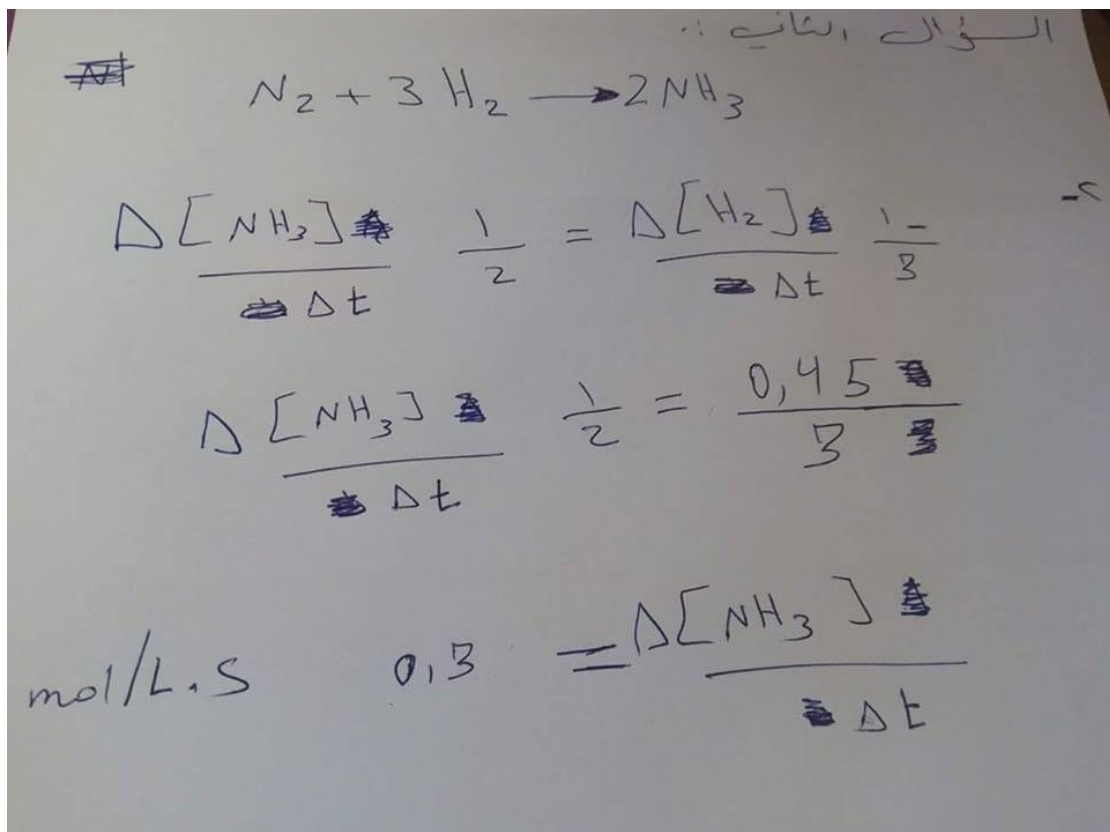 السؤال الثاني :.
N₂ + 3 H₂ → 2 NH₃
Δ[NH₃] / Δt 1/2 = Δ[H₂] / Δt 1/3 -
Δ[NH₃] / Δt 1/2 = 0,45 / 3
mol/L.S 0,3 = Δ[NH₃] / Δt